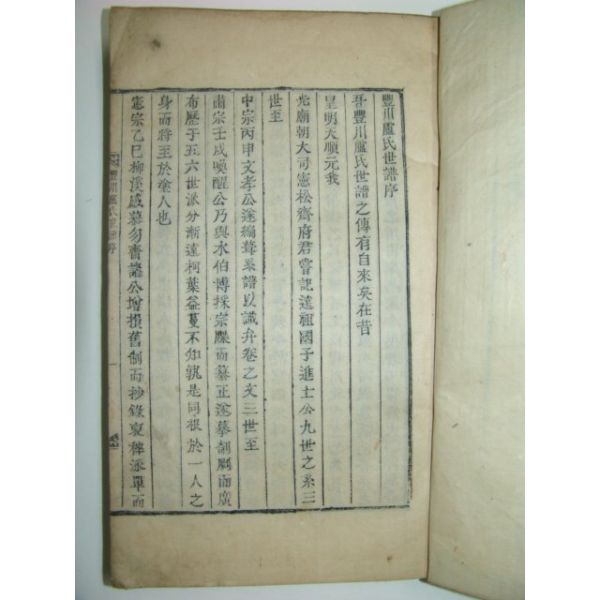 豐川盧氏世譜序
吾豐川盧氏世譜之傳有自來矣在昔
皇明天順元我
光廟朝大司憲松齋府君嘗記遠祖國子進士公九世之系三
世至
中宗丙申文孝公遂編
系譜以識弁卷之文三世至
肅宗壬戌喚醒公乃與水伯博採宗牒而纂正遂募剞劂而廣
布歷于五六世派分漸遠柯葉益蔓不知孰是同根於一人之
身而將至於塗人也
憲宗乙巳柳溪感慕勿齋諸公增損舊制而抄錄裒稡派單而